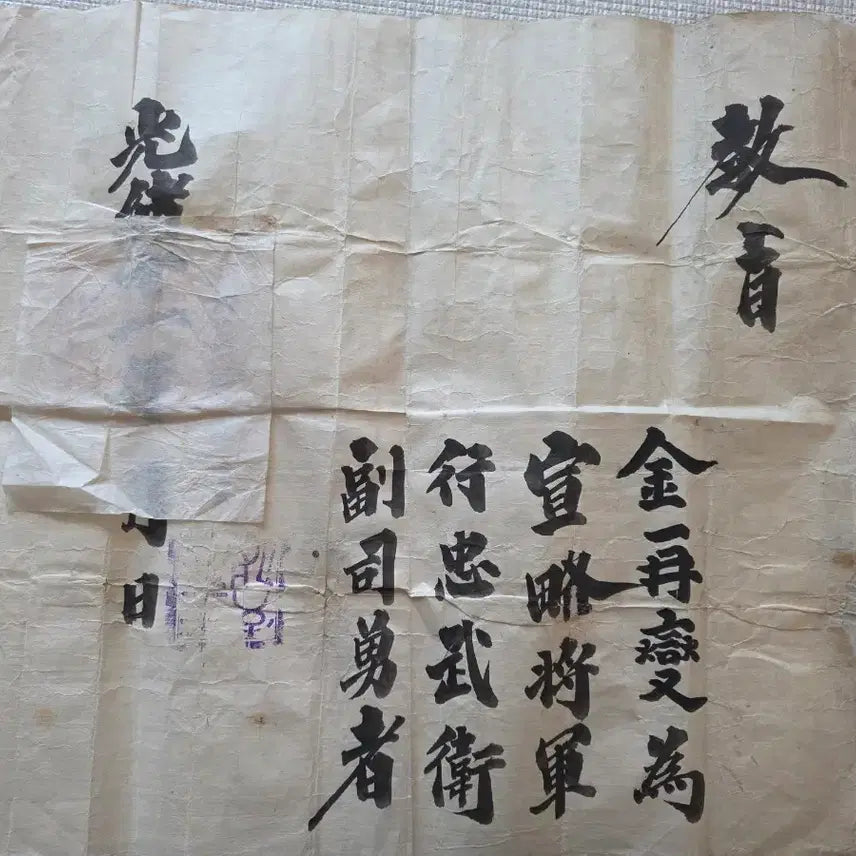 教旨
金再燮為
宣略將軍
行忠武衛
副司勇者
光緒
月日